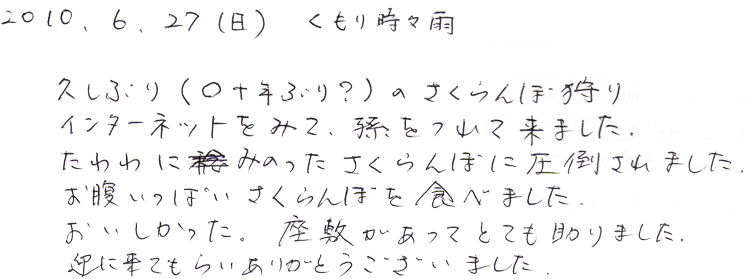 2010.6.27(日) くもり時々雨
久しぶり(〇十年ぶり?)のさくらんぼ狩り
インターネットをみて、孫をつれて来ました.
たわわにみのったさくらんぼに圧倒されました.
お腹いっぱいさくらんぼを食べました.
おいしかった。座敷があってとても助りました.
迎に来てもらいありがとうございました.